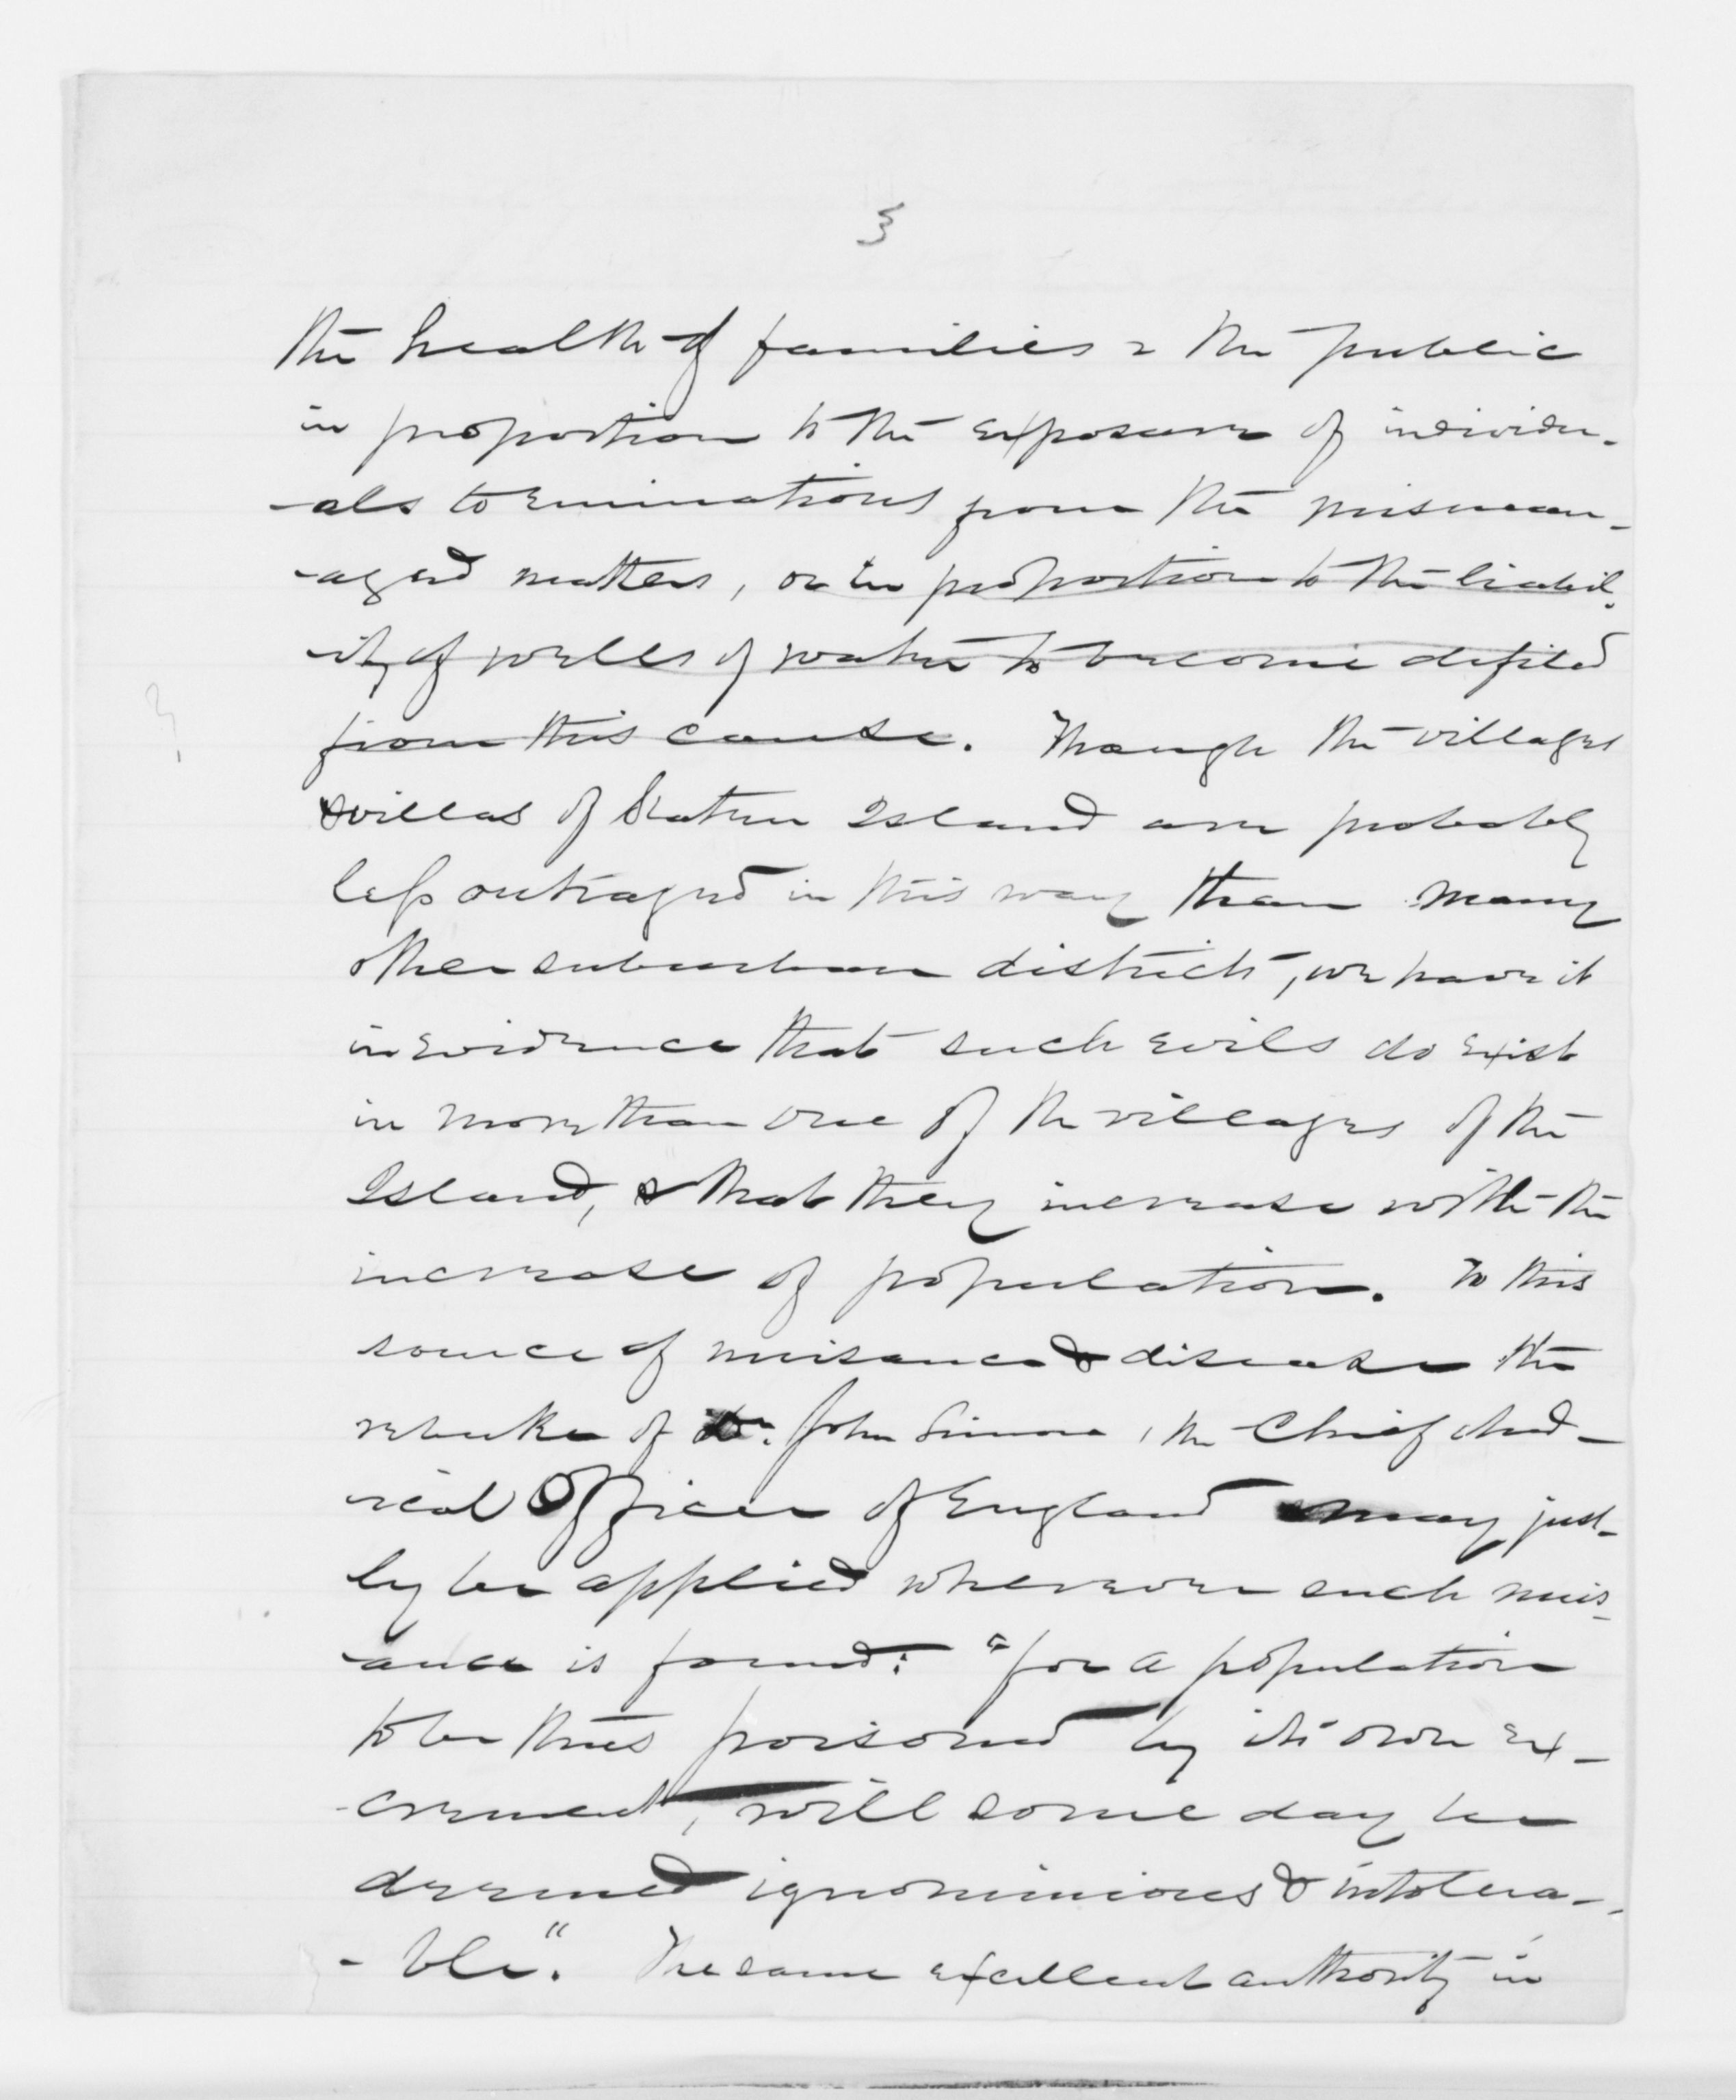 3
the health of families & the public
in proportion to the exposure of individu-
-als to eminations from the misman-
-aged matters, or in proportion to the liabil-
-ity of wells of water to become defiled
from this cause. Though the villages
& villas of Staten Island are probably
less outraged in this way than many
other suburban districts, we have it
in evidence that such evils do exist
in more than one of the villages of the
Island, & that they increase with the
increase of population. To this
source of nuisance & disease the
rebuke of Dr. John Simon, the Chief Med-
-ical Officer of England may just-
ly be applied wherever such nuis-
-ance is found: "for a population
to be thus poisoned by its own ex-
-crement, will some day be
deemed ignominious & intolera-
-ble." The same excellent authority in